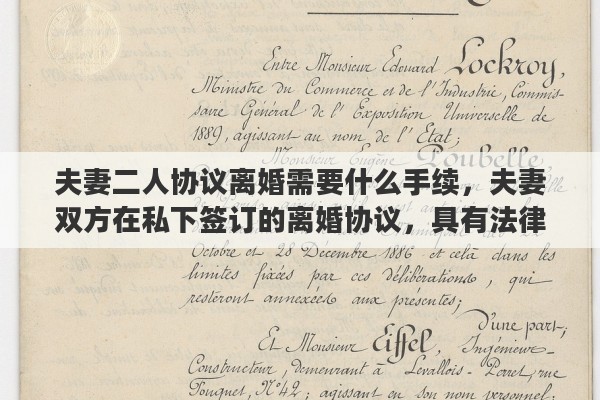 Entre Monsieur Edouard Lockroy,
Ministre du Commerce et de l'Industrie, Commis-
saire Général de l'Exposition Universelle de
1889, agissant au nom de l'Etat;
Monsieur Eugène Poubelle
夫妻二人协议离婚需要什么手续，夫妻
双方在私下签订的离婚协议，具有法律
Octobre et 28 Décembre 1886 et celà dans les
limites fixées par ces délibérations, qui
resteront annexées aux présentes;
D'une part;
Et Monsieur Eiffel, Ingénieur-
Constructeur, demeurant à Levallois-Perret, rue
Fouquet, N° 42; agissant en son nom personnel;